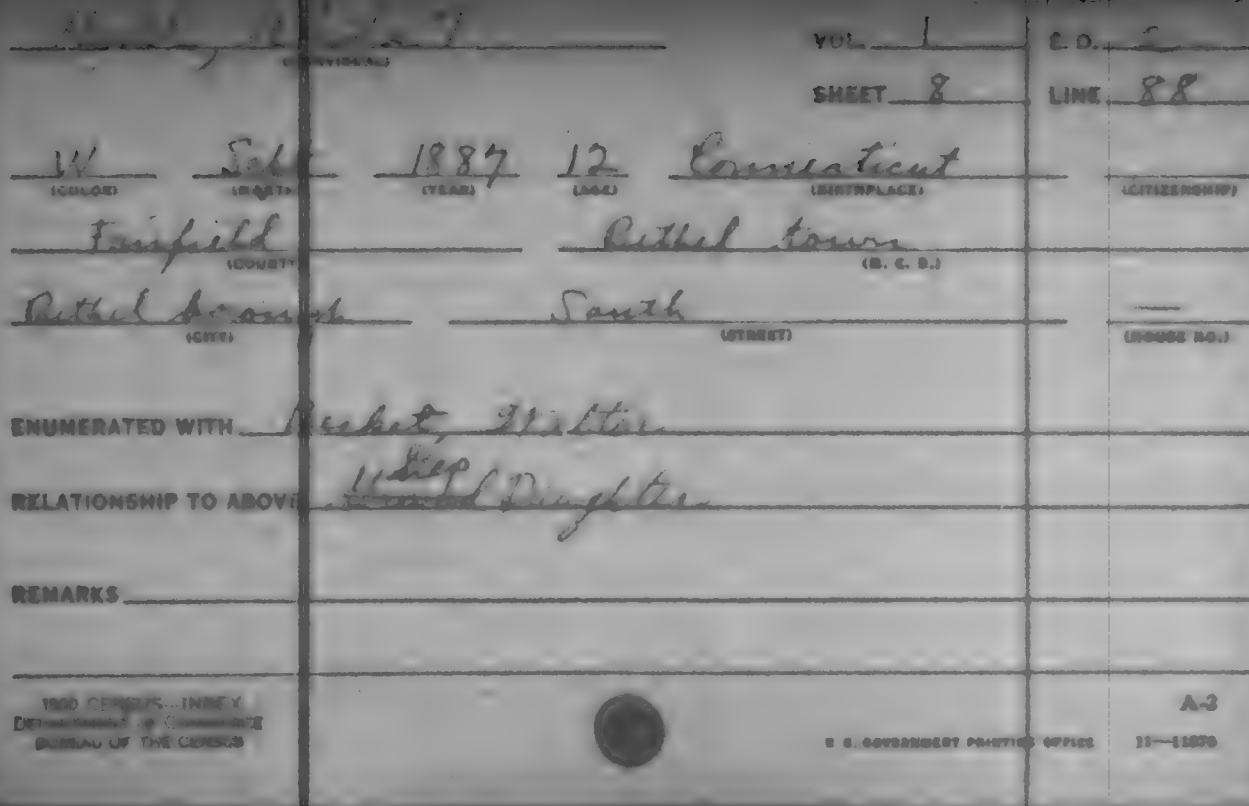 VOL. 1 E. D. 2
(INDIVIDUAL)
SHEET 8 LINE 88
W Sept 1887 12 Connecticut
(COLOR) (MONTH) (YEAR) (AGE) (BIRTHPLACE) (CITIZENSHIP)
Fairfield Bethel town
(COUNTY) (M. C. D.)
Bethel borough South —
(CITY) (STREET) (HOUSE NO.)
ENUMERATED WITH
RELATIONSHIP TO ABOVE Step Daughter
REMARKS
1900 CENSUS—INDEX A-2
DEPARTMENT OF COMMERCE
BUREAU OF THE CENSUS U S. GOVERNMENT PRINTING OFFICE 11—11870